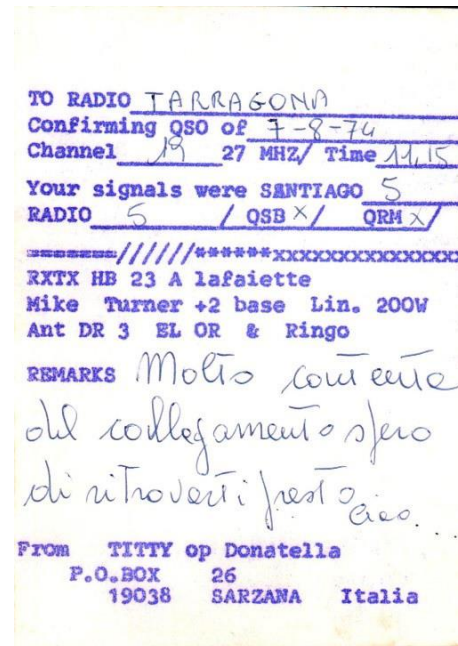 TO RADIO TARRAGONA
Confirming QSO of 7-8-74
Channel 19 27 MHZ/ Time 11,15
Your signals were SANTIAGO 5
RADIO 5 / QSB X/ QRM X/
========//////******xxxxxxxxxxxxxxxx
RXTX HB 23 A lafaiette
Mike Turner +2 base Lin. 200W
Ant DR 3 EL OR & Ringo
REMARKS Molto contenta
del collegamento spero
di ritroverti presto
Ciao...
From TITTY op Donatella
P.O.BOX 26
19038 SARZANA Italia